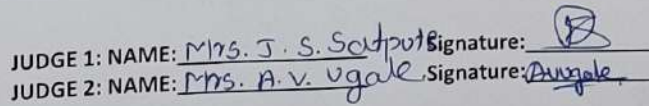 JUDGE 1: NAME: Mrs. J. S. Satpute Signature:
JUDGE 2: NAME: Mrs. A. V. Ugale Signature: Avugale